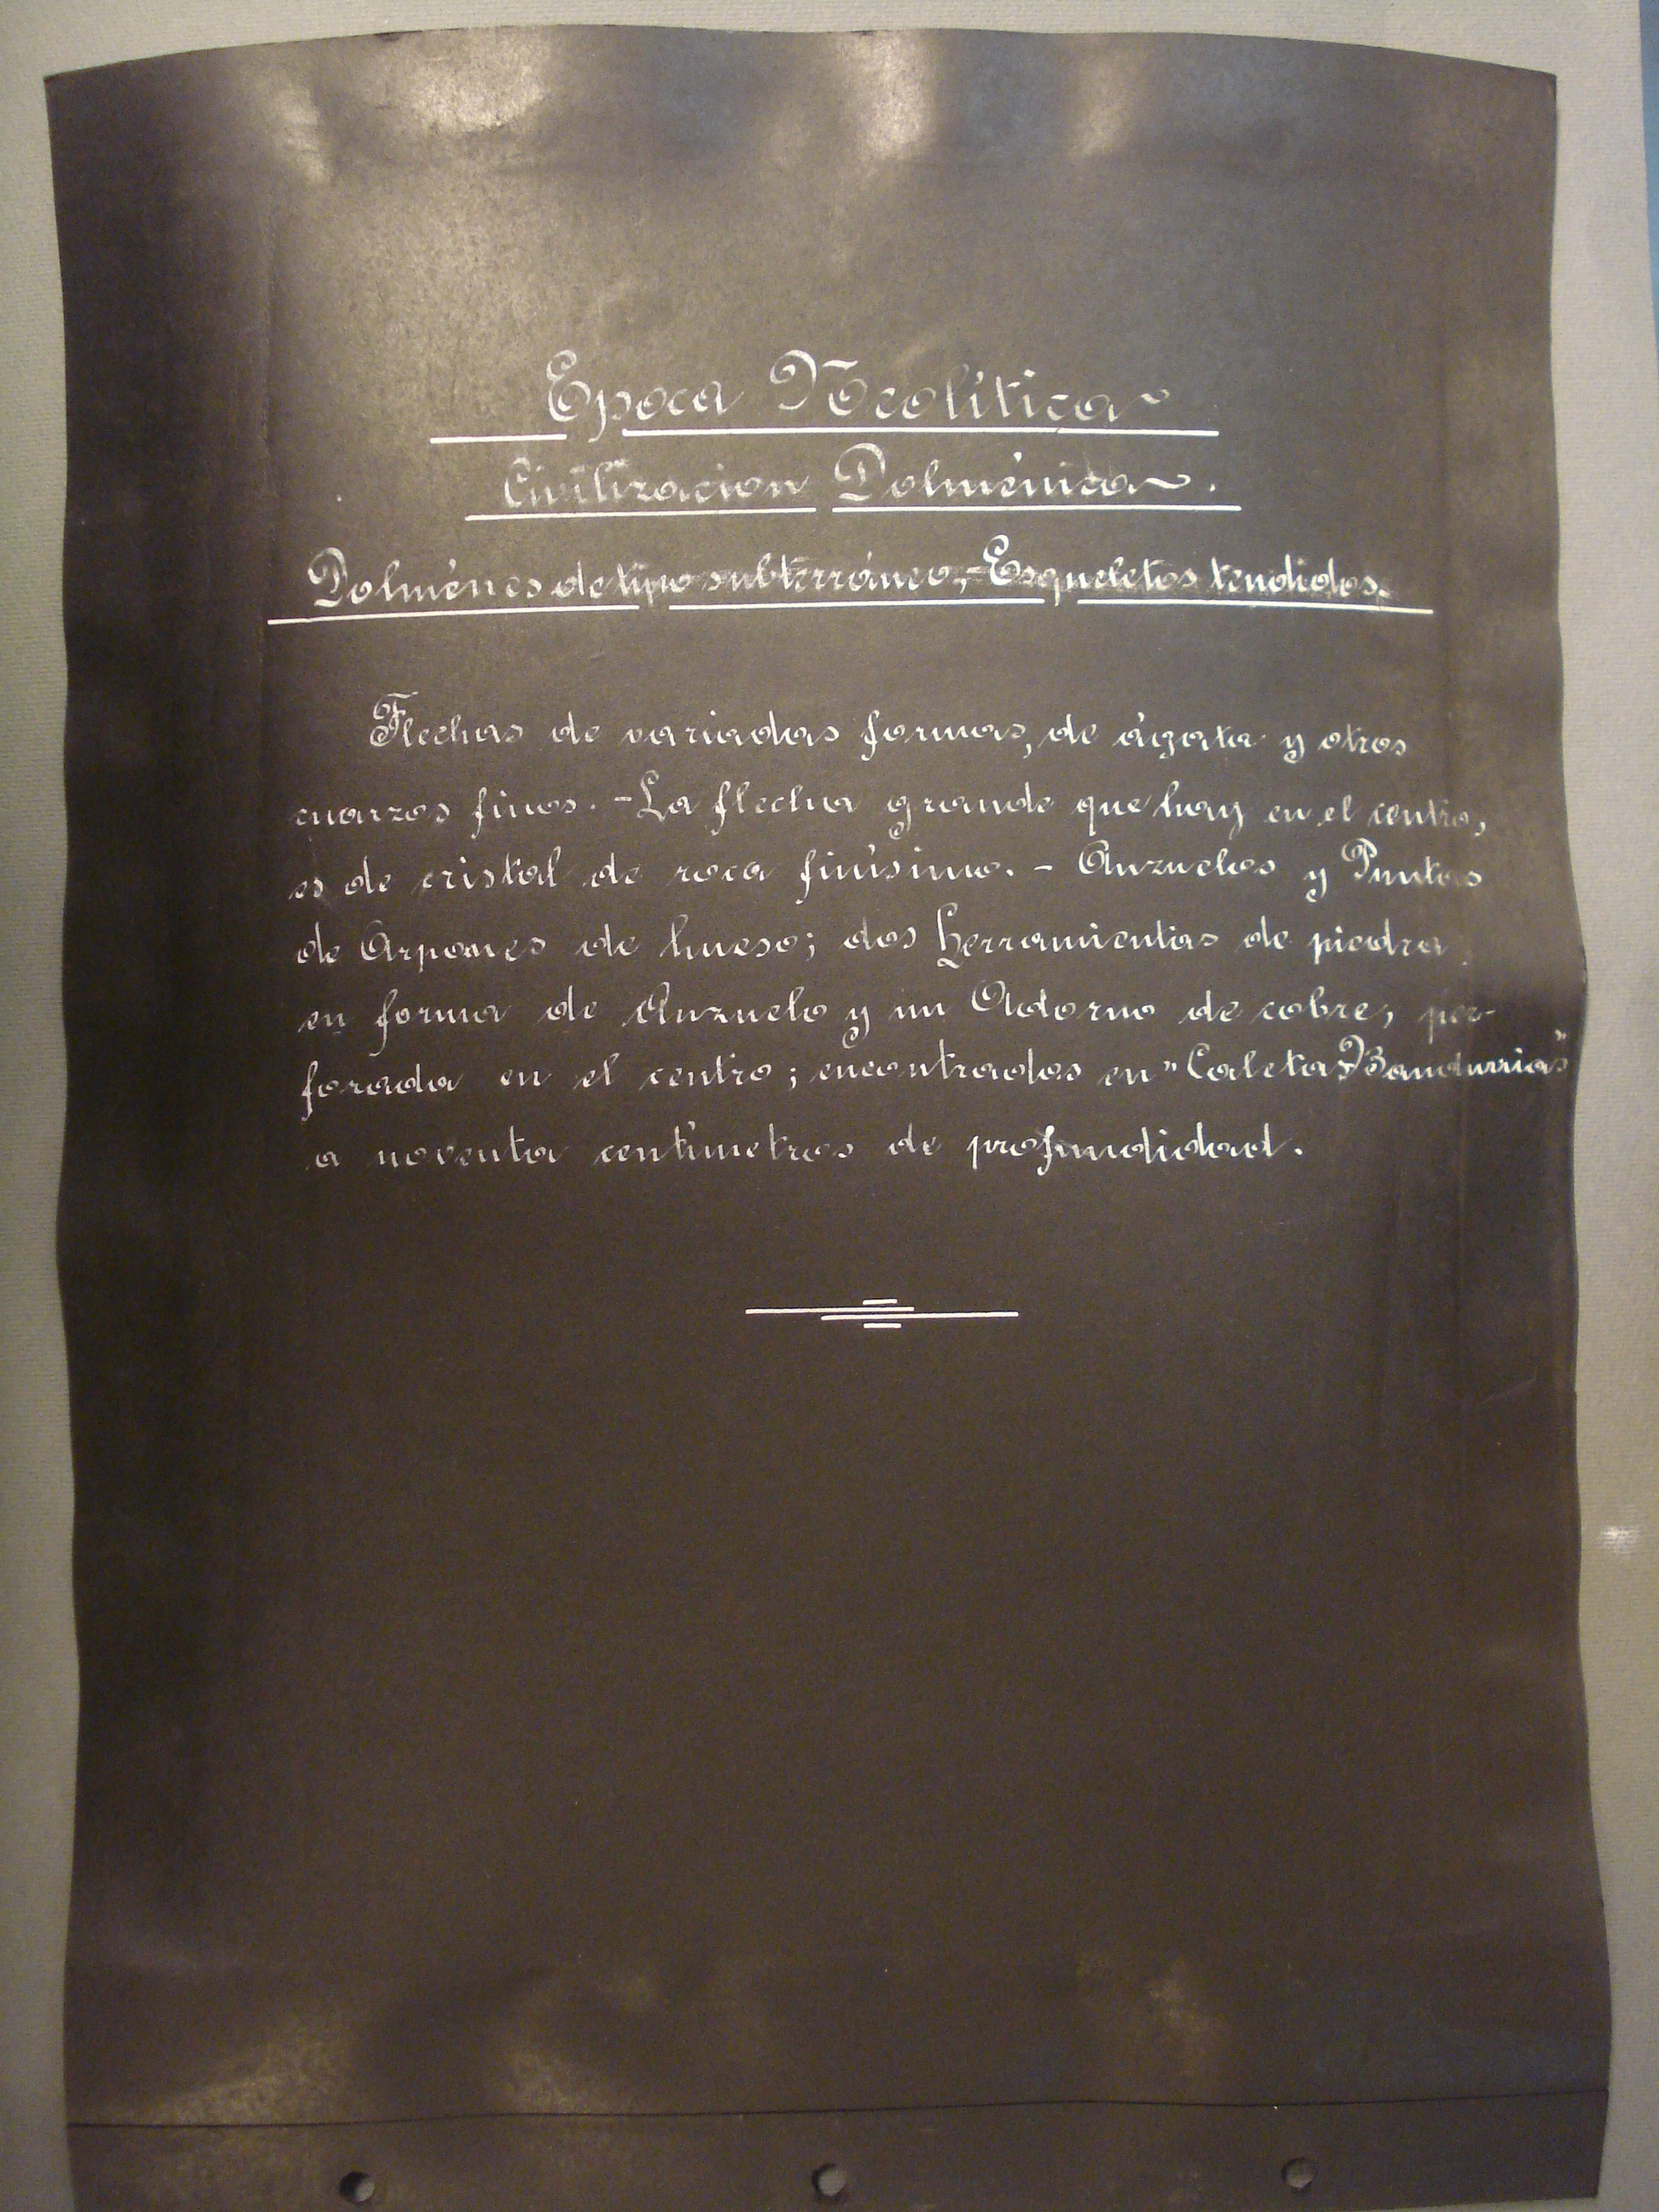 Epoca Neolítica
Civilizacion Dolménica.
Dolménes de tipo subterráneo,-Esqueletos tendidos.
Flechas de variadas formas, de ágata y otros
cuarzos finos. -La flecha grande que hay en el centro,
es de cristal de roca finísimo. - Anzuelos y Puntas
de Arpones de hueso; dos herramientas de piedra,
en forma de Anzuelo y un Adorno de cobre, per-
forada en el centro; encontrados en "Caleta Bandurrias"
a noventa centímetros de profundidad.